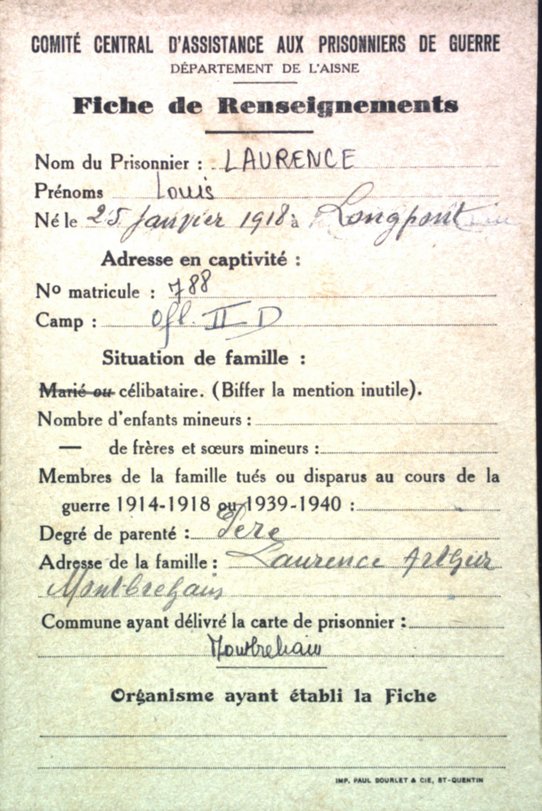 COMITÉ CENTRAL D'ASSISTANCE AUX PRISONNIERS DE GUERRE
DÉPARTEMENT DE L'AISNE
Fiche de Renseignements
Nom du Prisonnier : LAURENCE
Prénoms Louis
Né le 25 janvier 1918 à Longpont
Adresse en captivité :
Nº matricule : 788
Camp : Ofl. II D
Situation de famille :
Marié ou célibataire. (Biffer la mention inutile).
Nombre d'enfants mineurs :
— de frères et sœurs mineurs :
Membres de la famille tués ou disparus au cours de la
guerre 1914-1918 ou 1939-1940 :
Degré de parenté : Père
Adresse de la famille : Laurence Arthur
Montbrehain
Commune ayant délivré la carte de prisonnier :
Montbrehain
Organisme ayant établi la Fiche
IMP. PAUL BOURLET & CIE, ST-QUENTIN